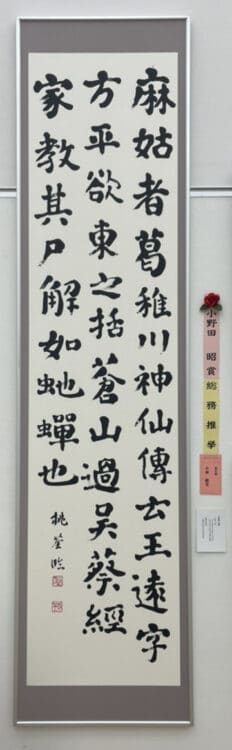 麻姑者葛稚川神仙傳云王遠字
方平欲東之括蒼山過吴蔡經
家教其尸解如虵蟬也
桃茎臨
小野田 昭賞 総務推挙